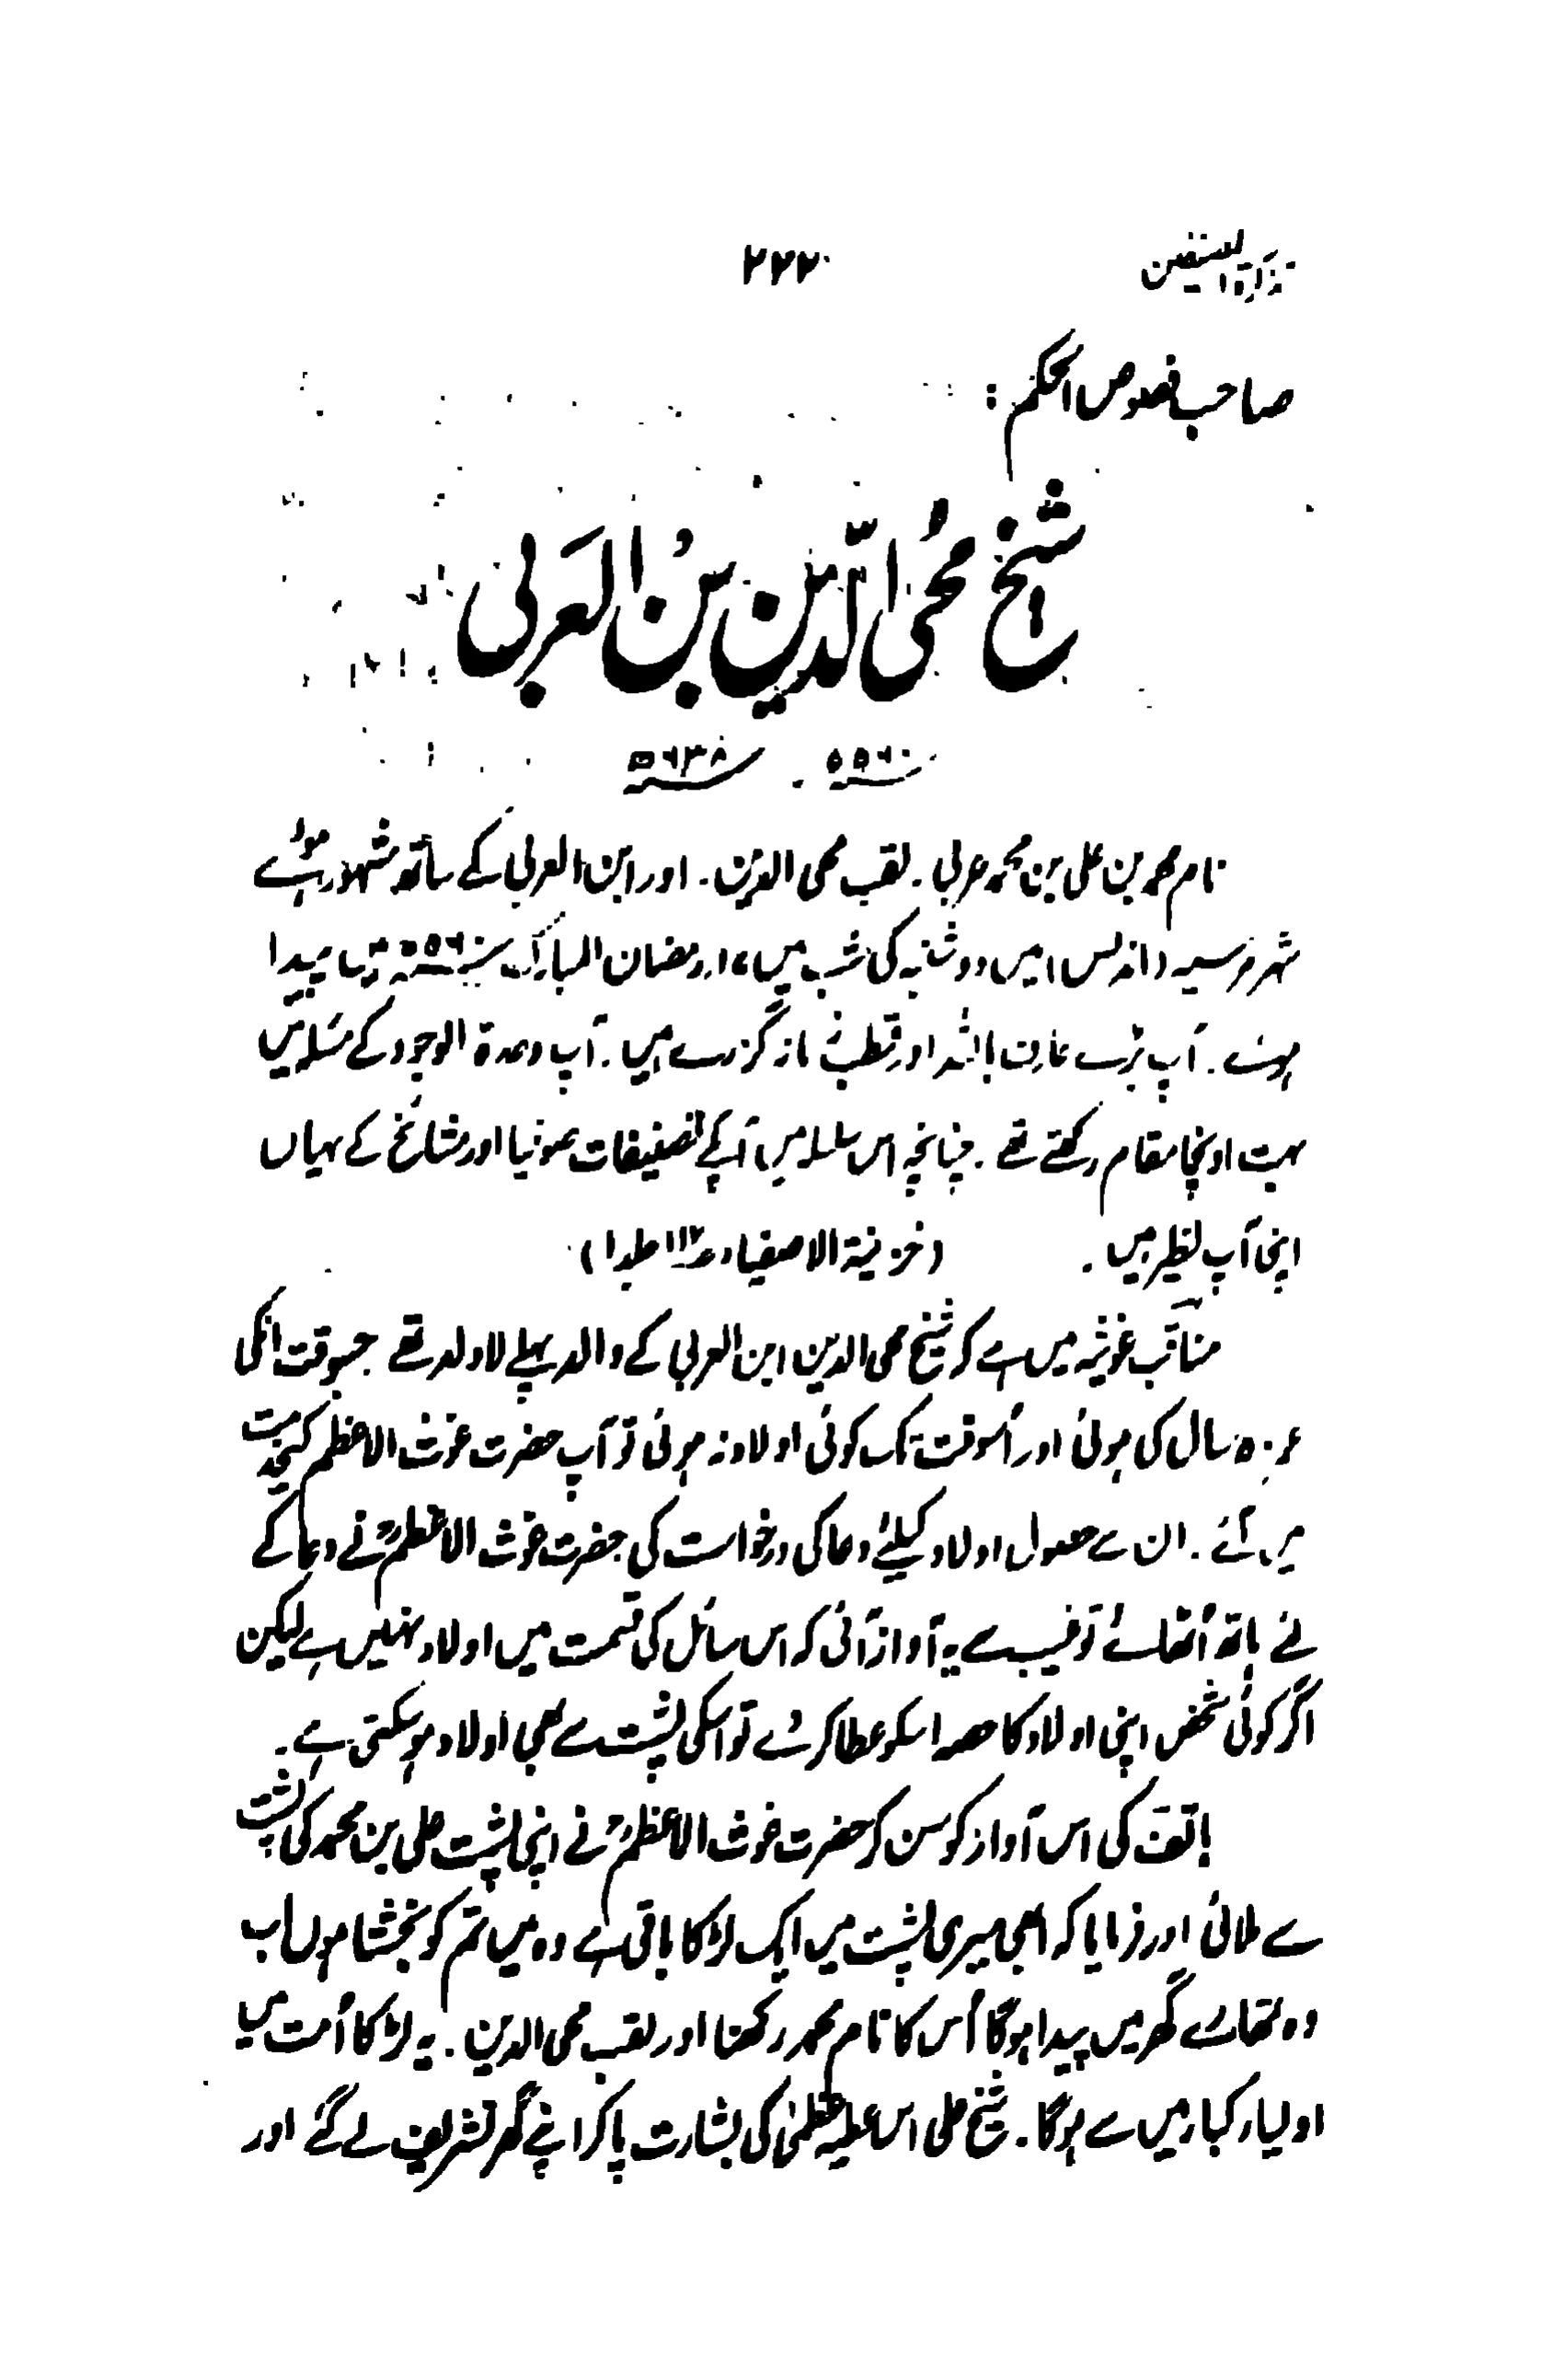 تذکرۃ المصنفین ۲۲۲
صاحب فصوص الحکم :
شیخ محُی الدّین بنُ العَربی
۵۵۶۰ . ۵۶۳۸
نام محمد بن علی بن محمد عربی . لقب محی الدین . اور ابن العربی کے ساتھ مشہور ہوئے
شہر مرسیہ (اندلس) میں دوشنبہ کی شب میں ۱۷ رمضان المبارک سنہ ۵۶۰ھ میں پیدا
ہوئے . آپ بڑے عارف باللہ اور قطب زمانہ گزرے ہیں . آپ وحدۃ الوجود کے مسئلہ میں
بہت اونچا مقام رکھتے تھے . چنانچہ اس سلسلہ میں آپکے تصنیفات صوفیا اور مشائخ کے یہاں
اپنی آپ نظیر ہیں . (خزینۃ الاصفیاء جلد ۱)
مناقب غوثیہ میں ہے کہ شیخ محی الدین ابن العربی کے والد پہلے لاولد تھے جسوقت انکی
عمر ۵۰ سال کی ہوئی اور اُسوقت تک کوئی اولاد نہ ہوئی تو آپ حضرت غوث الاعظم کی خدمت
میں آئے . ان سے حصول اولاد کیلئے دعا کی درخواست کی حضرت غوث الاعظمؒ نے دعا کے
لئے ہاتھ اُٹھائے تو غیب سے یہ آواز آئی کہ اس سائل کی قسمت میں اولاد نہیں ہے لیکن
اگر کوئی شخص اپنی اولاد کا حصہ اسکو عطا کر دے تو اسکی پشت سے بھی اولاد ہو سکتی ہے .
ہاتف کی اس آواز کو سن کر حضرت غوث الاعظمؒ نے اپنی پشت علی بن محمد کی پشت
سے ملائی اور فرمایا کہ ابھی میری پشت میں ایک لڑکا باقی ہے وہ میں تم کو بخشتا ہوں اب
وہ تمھارے گھر میں پیدا ہوگا اُس کا نام محمد رکھنا اور لقب محی الدین . یہ لڑکا اُمت میں
اولیاء کبار میں سے ہوگا . شیخ علی اس عطیہ عظمیٰ کی بشارت پاکر اپنے گھر تشریف لے گئے اور